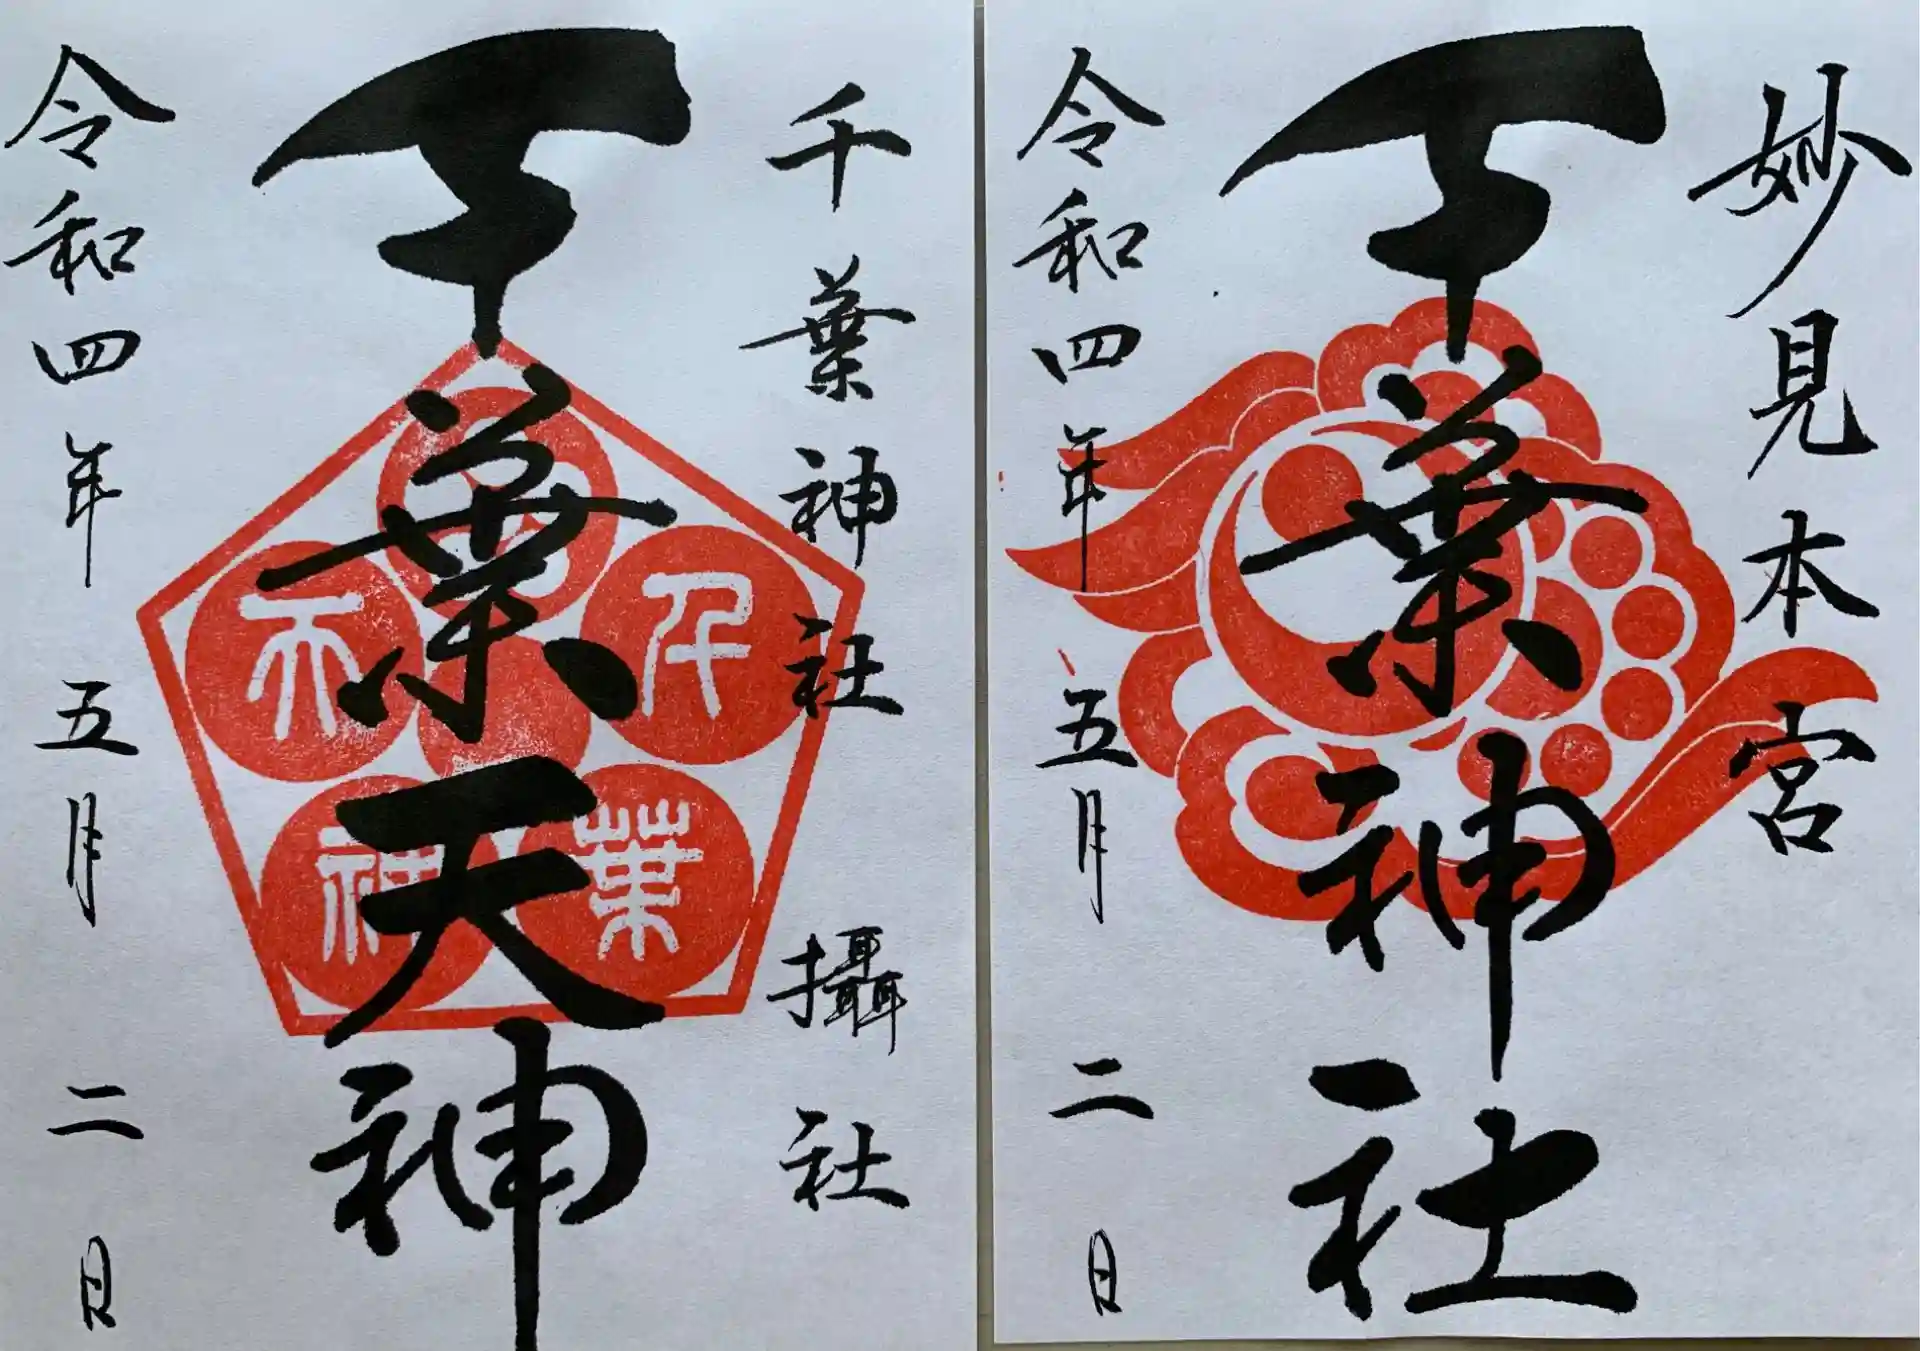 妙見本宮
千葉神社
令和四年五月二日
千葉神社 攝社
千葉天神
千葉天神
令和四年五月二日